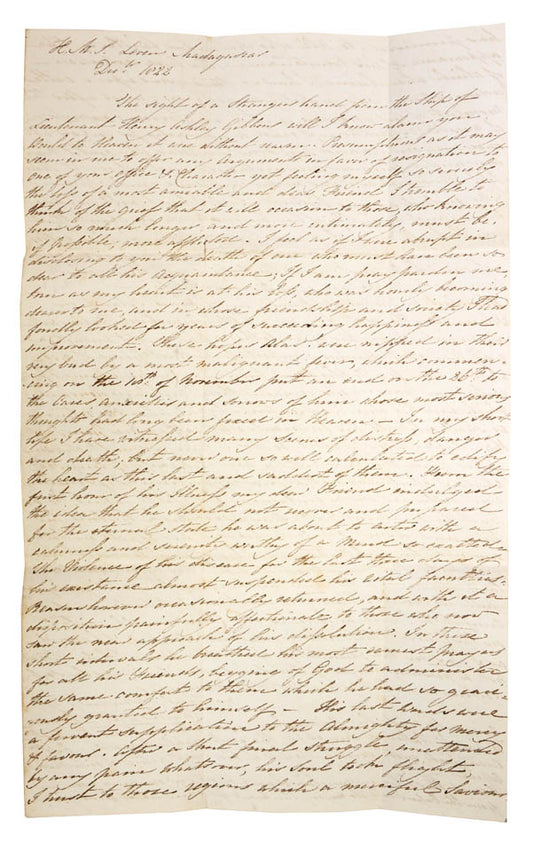 H. M. S. Leven Madagascar
Decr. 1822
The sight of a Strangers hand from the Ship of
Lieutenant Henry Gibbons will I know alarm you
Would to Heaven it was without reason. Presumptuous as it may
seem in me to offer any arguments in favor of resignation to
one of your office & Character yet feeling myself so severely
the loss of a most amiable and dear Friend I tremble to
think of the grief that it will occasion to those who knowing
him so much longer and more intimately must be
if possible more afflicted. I feel as if I were abrupt in
disclosing to you the death of one who must have been so
dear to all his acquaintance; If I am pray pardon me,
torn as my heart is at his loss, who was hourly becoming
dearer to me, and in whose friendship and society I had
fondly looked for years of succeeding happiness and
improvement. These hopes alas! were nipped in their
very bud by a most malignant fever, which commen-
cing on the 10th. of November put an end on the 26th. to
the cares anxieties and sorrows of him whose most serious
thoughts had long been fixed in Heaven – In my short
life I have witnessed many scenes of distress, danger
and death; but never one so well calculated to edify
the heart as this last and saddest of them. From the
first hour of his Illness my dear Friend indulged
the idea that he should not recover and prepared
for the eternal state he was about to enter with a
calmness and serenity worthy of a Mind so exalted –
The Violence of his disease for the last three days of
his existence almost suspended his vital functions –
Reason however occasionally returned, and with it a
disposition painfully affectionate to those who now
saw the near approach of his dissolution. In these
short intervals he breathed his most earnest prayers
for all his Friends, begging of God to administer
the same comfort to them which he had so graci-
ously granted to himself – His last words were
a fervent supplication to the Almighty for mercy
& favour. After a short final struggle, unattended
by any pain whatever, his soul took flight,
I trust to those regions which a merciful Saviour